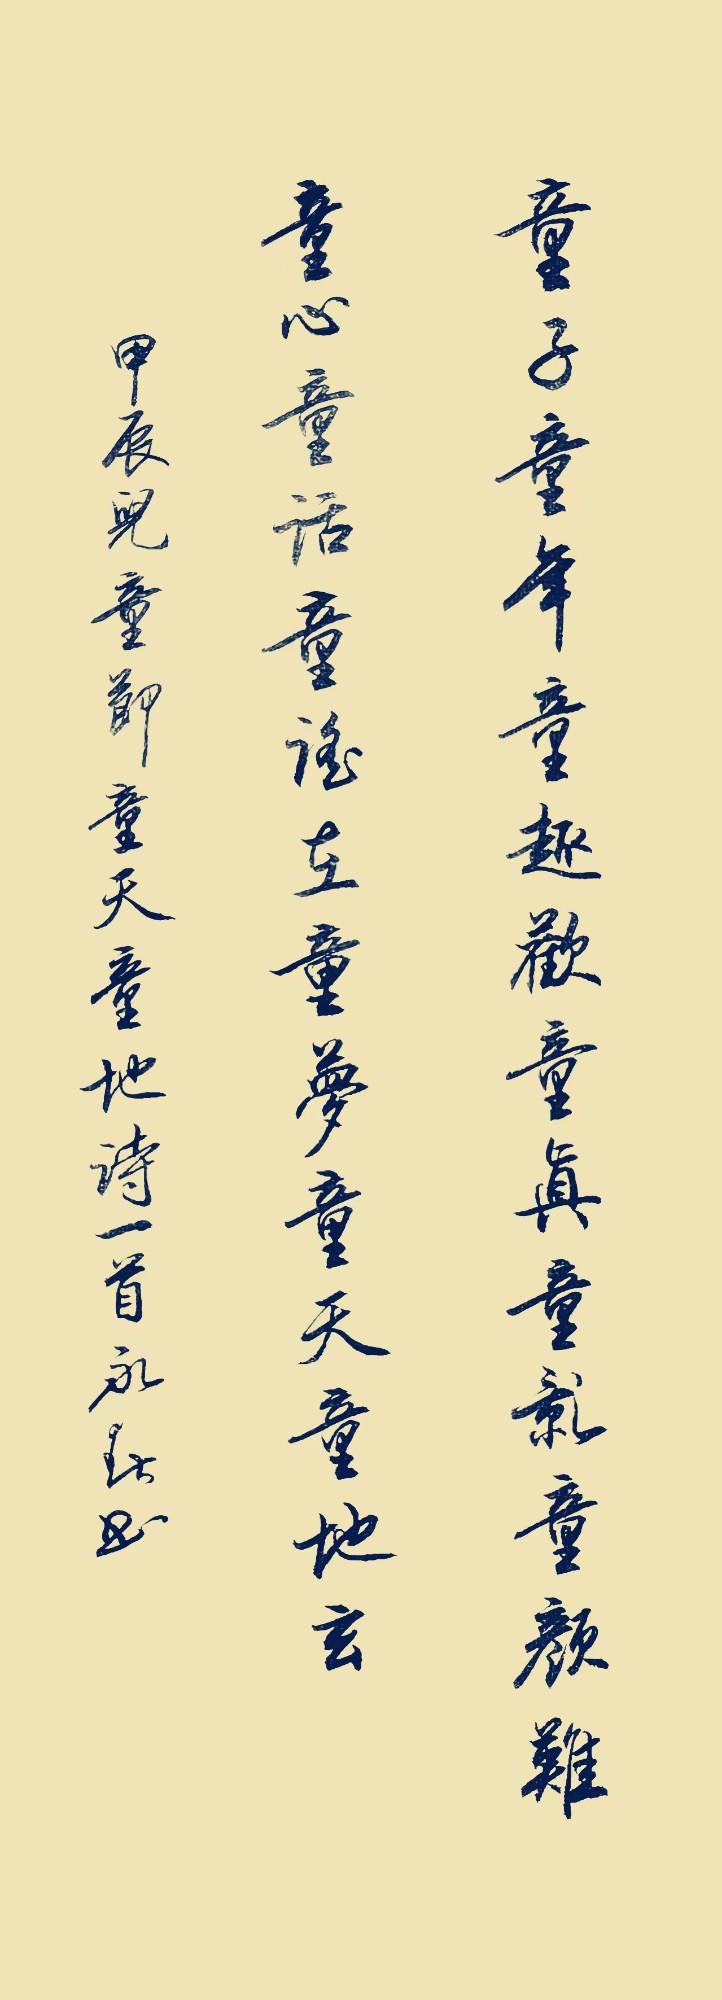 童子童年童趣歡童真童影童顏難
童心童話童謠在童夢童天童地玄
甲辰兒童節童天童地詩一首永